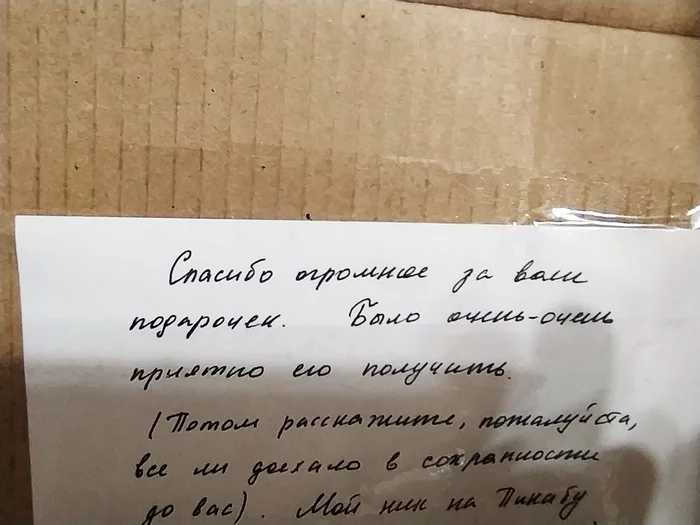 Спасибо огромное за ваш
подарочек. Было очень-очень
приятно его получить.
(Потом расскажите, пожалуйста,
все ли доехало в сохранности
до вас). Мой ник на Пикабу